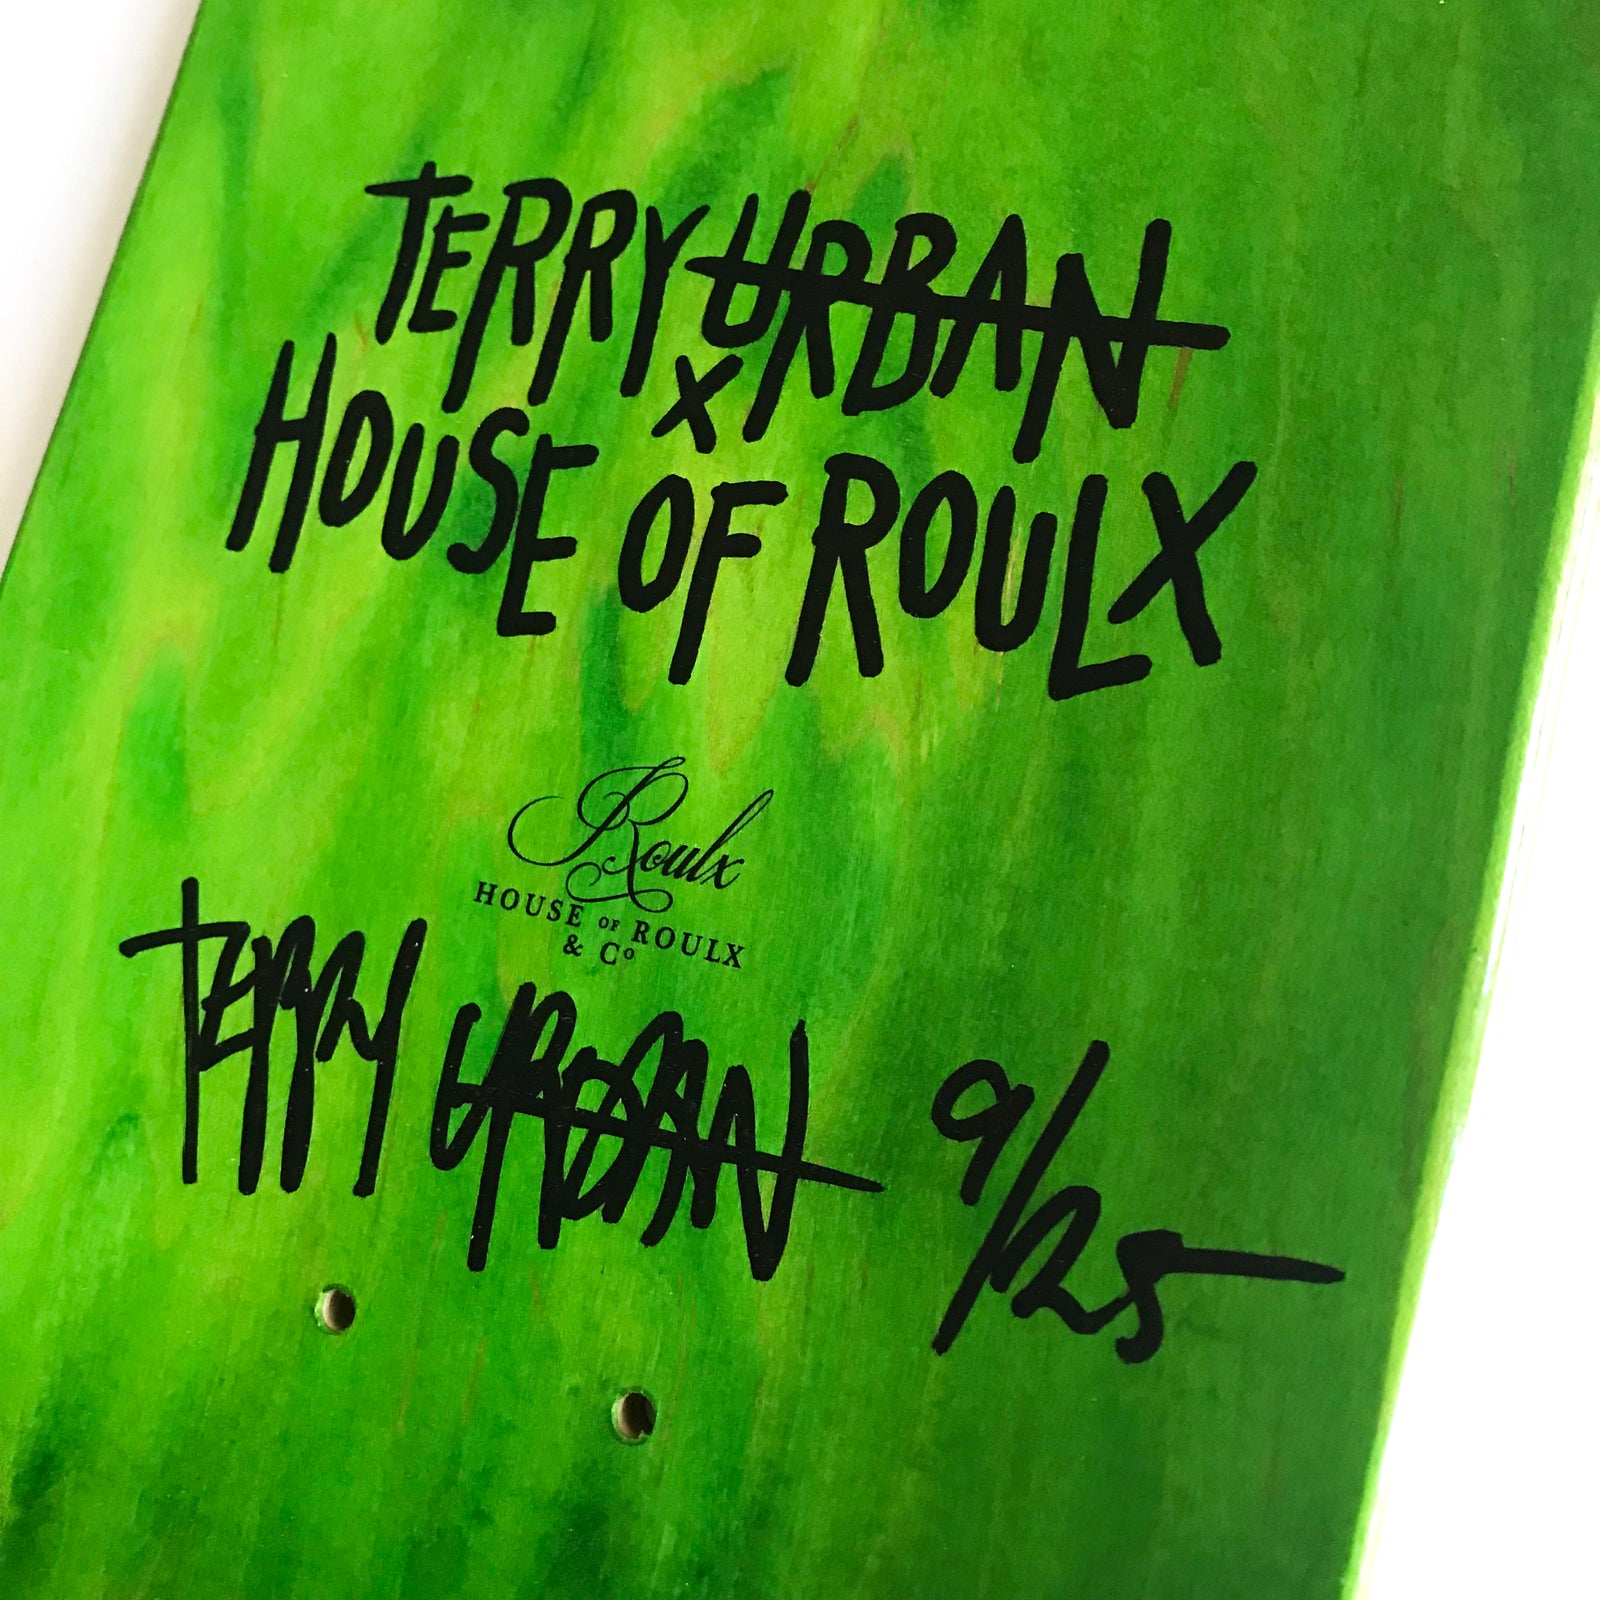 TERRY URBAN
X
HOUSE OF ROULX
Roulx
HOUSE OF ROULX
& Co
TERRY URBAN 9/25